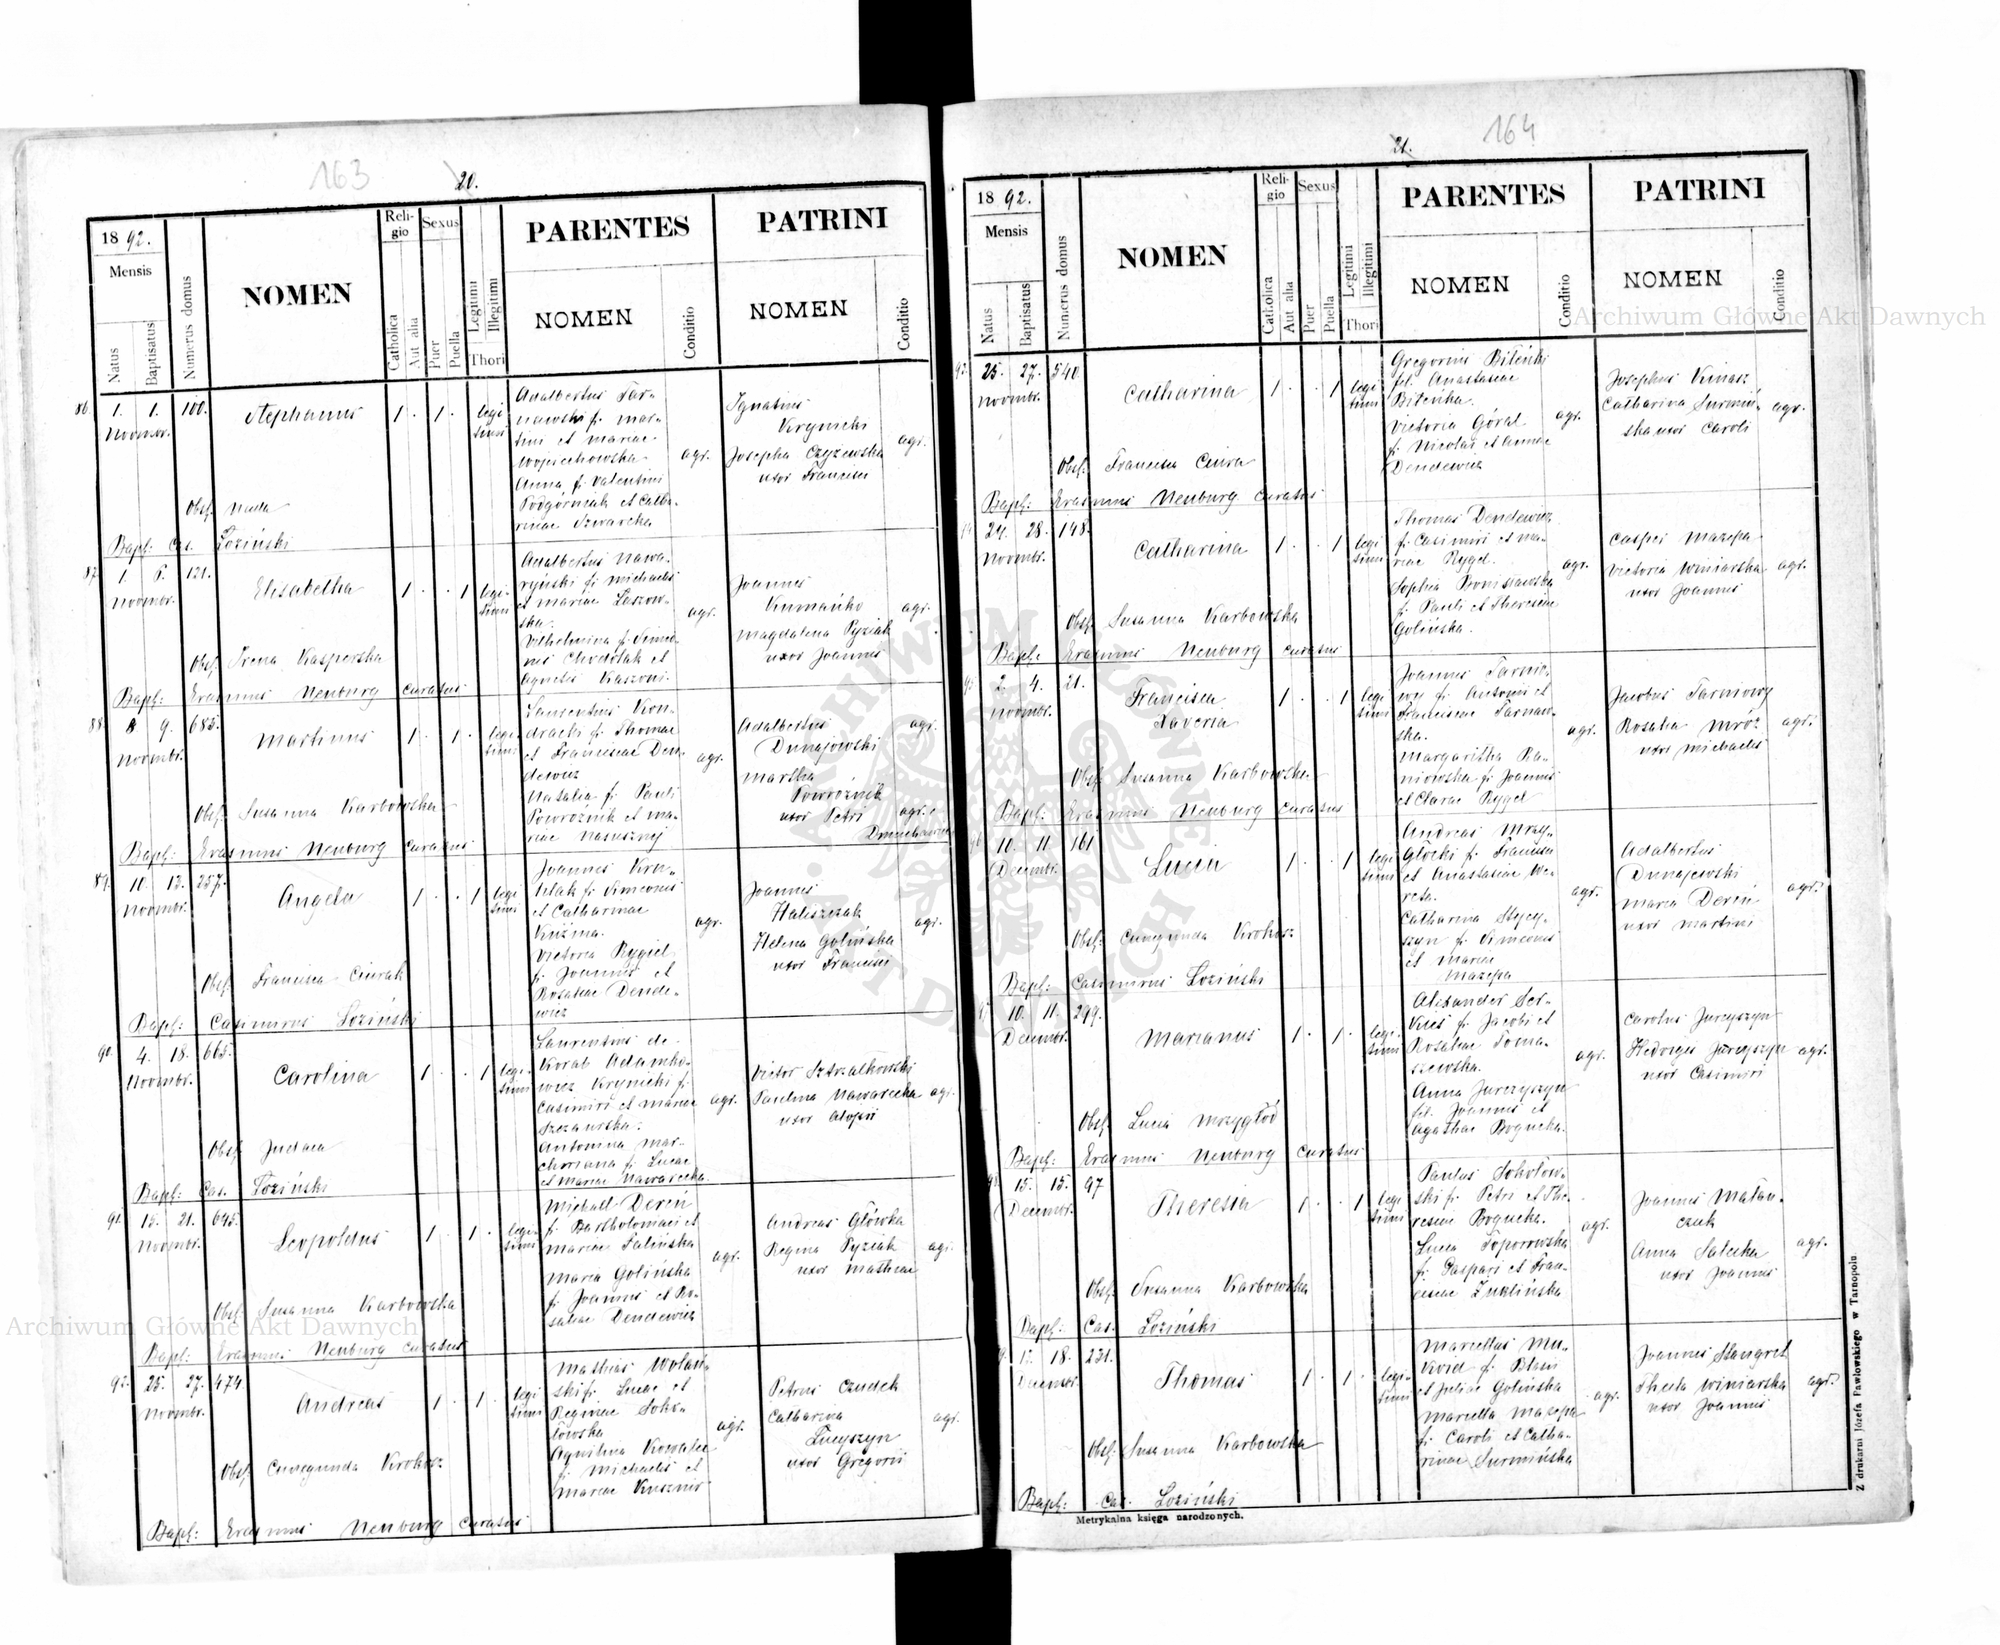 163
20.
18 92.
Mensis
Natus
Baptisatus
Numerus domus
NOMEN
Religio
Catholica
Aut alia
Sexus
Puer
Puella
Legitimi
Illegitimi
Thori
PARENTES
NOMEN
Conditio
PATRINI
NOMEN
Conditio
86. 1. 1. 100. Stephanus 1 1 legi
Novmbr. timi
Adalbertus Tar-
nawski f. Mar-
tini et Mariae
Wojciechowska
Anna f. Valentini
Podgórniak et Catha-
rinae Szwarcka
agr.
Ignatius
Krynicki
Josepha Czyżewska
uxor Francisci
agr.
Obst. nulla
Bapt: Cas. Łoziński
87. 1. 121. Elisabetha 1 1 legi-
Novmbr. timi
Adalbertus Nawa-
ryński f. Michaelis
et Mariae Leszow-
ska.
Vilhelmina f. Simeo-
nis Chodolak et
Agnetis
agr.
Joannes
Magdalena Pyziak
uxor Joannis
agr.
Obst. Irena Kasperska
Bapt: Erasmus Neuburg curatus
88. 8 9. 685. Martinus 1 1 legi-
Novmbr. timi
Laurentius Kon-
dracki f. Thomae
et Franciscae Den-
dewicz
Natalia f. Pauli
Powroźnik et Ma-
riae
agr.
Adalbertus
Dunajowski
agr.
Martha
Powroźnik
uxor Petri
agr.
Obst. Susanna Karbowska
Bapt: Erasmus Neuburg curatus
89. 10. 13. 257. Angela 1 1 legi
Novmbr. timi
Joannes
f. Simeonis
et Catharinae
Kuźma.
Victoria Rygiel
f. Joannis et
Rosaliae Dende-
wicz
agr.
Joannes
Haliszczak
Helena Golińska
uxor Francisci
agr.
Obst. Francisca Ciurak
Bapt: Casimirus Łoziński
90. 4. 18. 665. Carolina 1 1 legi-
Novmbr. timi
Laurentius de
Korab Adamko-
wicz Krynicki f.
Casimiri et Mariae
Szczawska.
Antonina Mar-
f. Lucae
et Mariae Nawarecka.
agr.
Victor Strzałkowski
Paulina Nawarecka
uxor Aloysii
agr.
Obst. Judaea
Bapt: Cas. Łoziński
91. 15. 21. 645. Leopoldus 1 1 legi-
Novmbr. timi
Michaël Dereń
f. Bartholomaei et
Mariae Falińska
Maria Golińska
f. Joannis et Ro-
saliae Dendewicz
agr.
Andreas Główka
Regina Pyziak
uxor Mathiae
agr.
Obst. Susanna Karbowska
Bapt: Erasmus Neuburg curatus
92. 25. 27. 474. Andreas 1 1 legi
Novmbr. timi
Mathias Wolań-
ski f. Lucae et
Reginae Soko-
łowska
f. Michaelis et
Mariae Kusznir
agr.
Petrus Czudek
Catharina
uxor Gregorii
agr.
Obst. Cunegunda Krokosz
Bapt: Erasmus Neuburg curatus
164
21.
18 92.
Mensis
Natus
Baptisatus
Numerus domus
NOMEN
Religio
Catholica
Aut alia
Sexus
Puer
Puella
Legitimi
Illegitimi
Thori
PARENTES
NOMEN
Conditio
PATRINI
NOMEN
Conditio
93. 25. 27. 540. Catharina 1 1 legi
Novmbr. timi
Gregorius Biteńki
fil. Anastasiae
Biteńka.
Victoria Góral
f. Nicolai et Annae
Dendewicz
agr.
Josephus Kinasz
Catharina Surmiń-
ska uxor Caroli
agr.
Obst. Francisca Ciura
Bapt: Erasmus Neuburg curatus
24. 28. 148. Catharina 1 1 legi
Novmbr. timi
Thomas Dendewicz
f. Casimiri et Ma-
riae Rygel.
Sophia Bronisławska
f. Pauli et Theresiae
Golińska.
agr.
Casper Mazepa
Victoria Winiarska
uxor Joannis
agr.
Obst. Susanna Karbowska
Bapt: Erasmus Neuburg curatus
2. 4. 21. Francisca
Novmbr. Xaveria 1 1 legi
timi
Joannes Tarnio-
wy f. Antonii et
Franciscae Tarnaw-
ska.
Margaritha Ra-
niowska f. Joannis
et Clarae Rygel
agr.
Jacobus Tarniowy
Rosalia Mróz
uxor Michaelis
agr.
Obst. Susanna Karbowska
Bapt: Erasmus Neuburg curatus
96 10. 11 161 Lucia 1 1 legi
Decembr. timi
Andreas Mrzy-
głócki f. Francisci
et Anastasiae We-
reta.
Catharina Stycy-
szyn f. Simeonis
et Mariae
Mazepa
agr.
Adalbertus
Dunajewski
Maria Dereń
uxor Martini
agr.
Obst. Cunegunda Krokosz
Bapt: Casimirus Łoziński
10. 11. 299. Marianus 1 1 legi-
Decembr. timi
Alexander Ser-
kies f. Jacobi et
Rosaliae Toma-
szewska.
Anna Jurczyszyn
fil. Joannis et
Agathae Bogucka.
agr.
Carolus Jurczyszyn
Hedvigis Jurczyszyn
uxor Casimiri
agr.
Obst. Lucia Mrzygłód
Bapt: Erasmus Neuburg curatus
98 15. 15. 97 Theresia 1 1 legi
Decembr. timi
Paulus Sokołow-
ski f. Petri et The-
resiae Bogucka.
Lucia Toporowska
f. Gaspari et Fran-
ciscae Żuklińska
agr.
Joannes Matań-
czuk
Anna Sałecka
uxor Joannis
agr.
Obst. Susanna Karbowska
Bapt: Cas. Łoziński
18. 231. Thomas 1 1 legi-
Decembr. timi
Marcellus Mu-
f. Blasii
et Juliae Golińska
Marcella Mazepa
f. Caroli et Catha-
rinae Surmińska
agr.
Joannes Stangret
Thecla Winiarska
uxor Joannis
agr.
Obst. Susanna Karbowska
Bapt: Cas. Łoziński
Metrykalna księga narodzonych.
Z drukarni Józefa Pawłowskiego w Tarnopolu.
Archiwum Główne Akt Dawnych
Archiwum Główne Akt Dawnych
ARCHIWUM GŁÓWNE AKT DAWNYCH